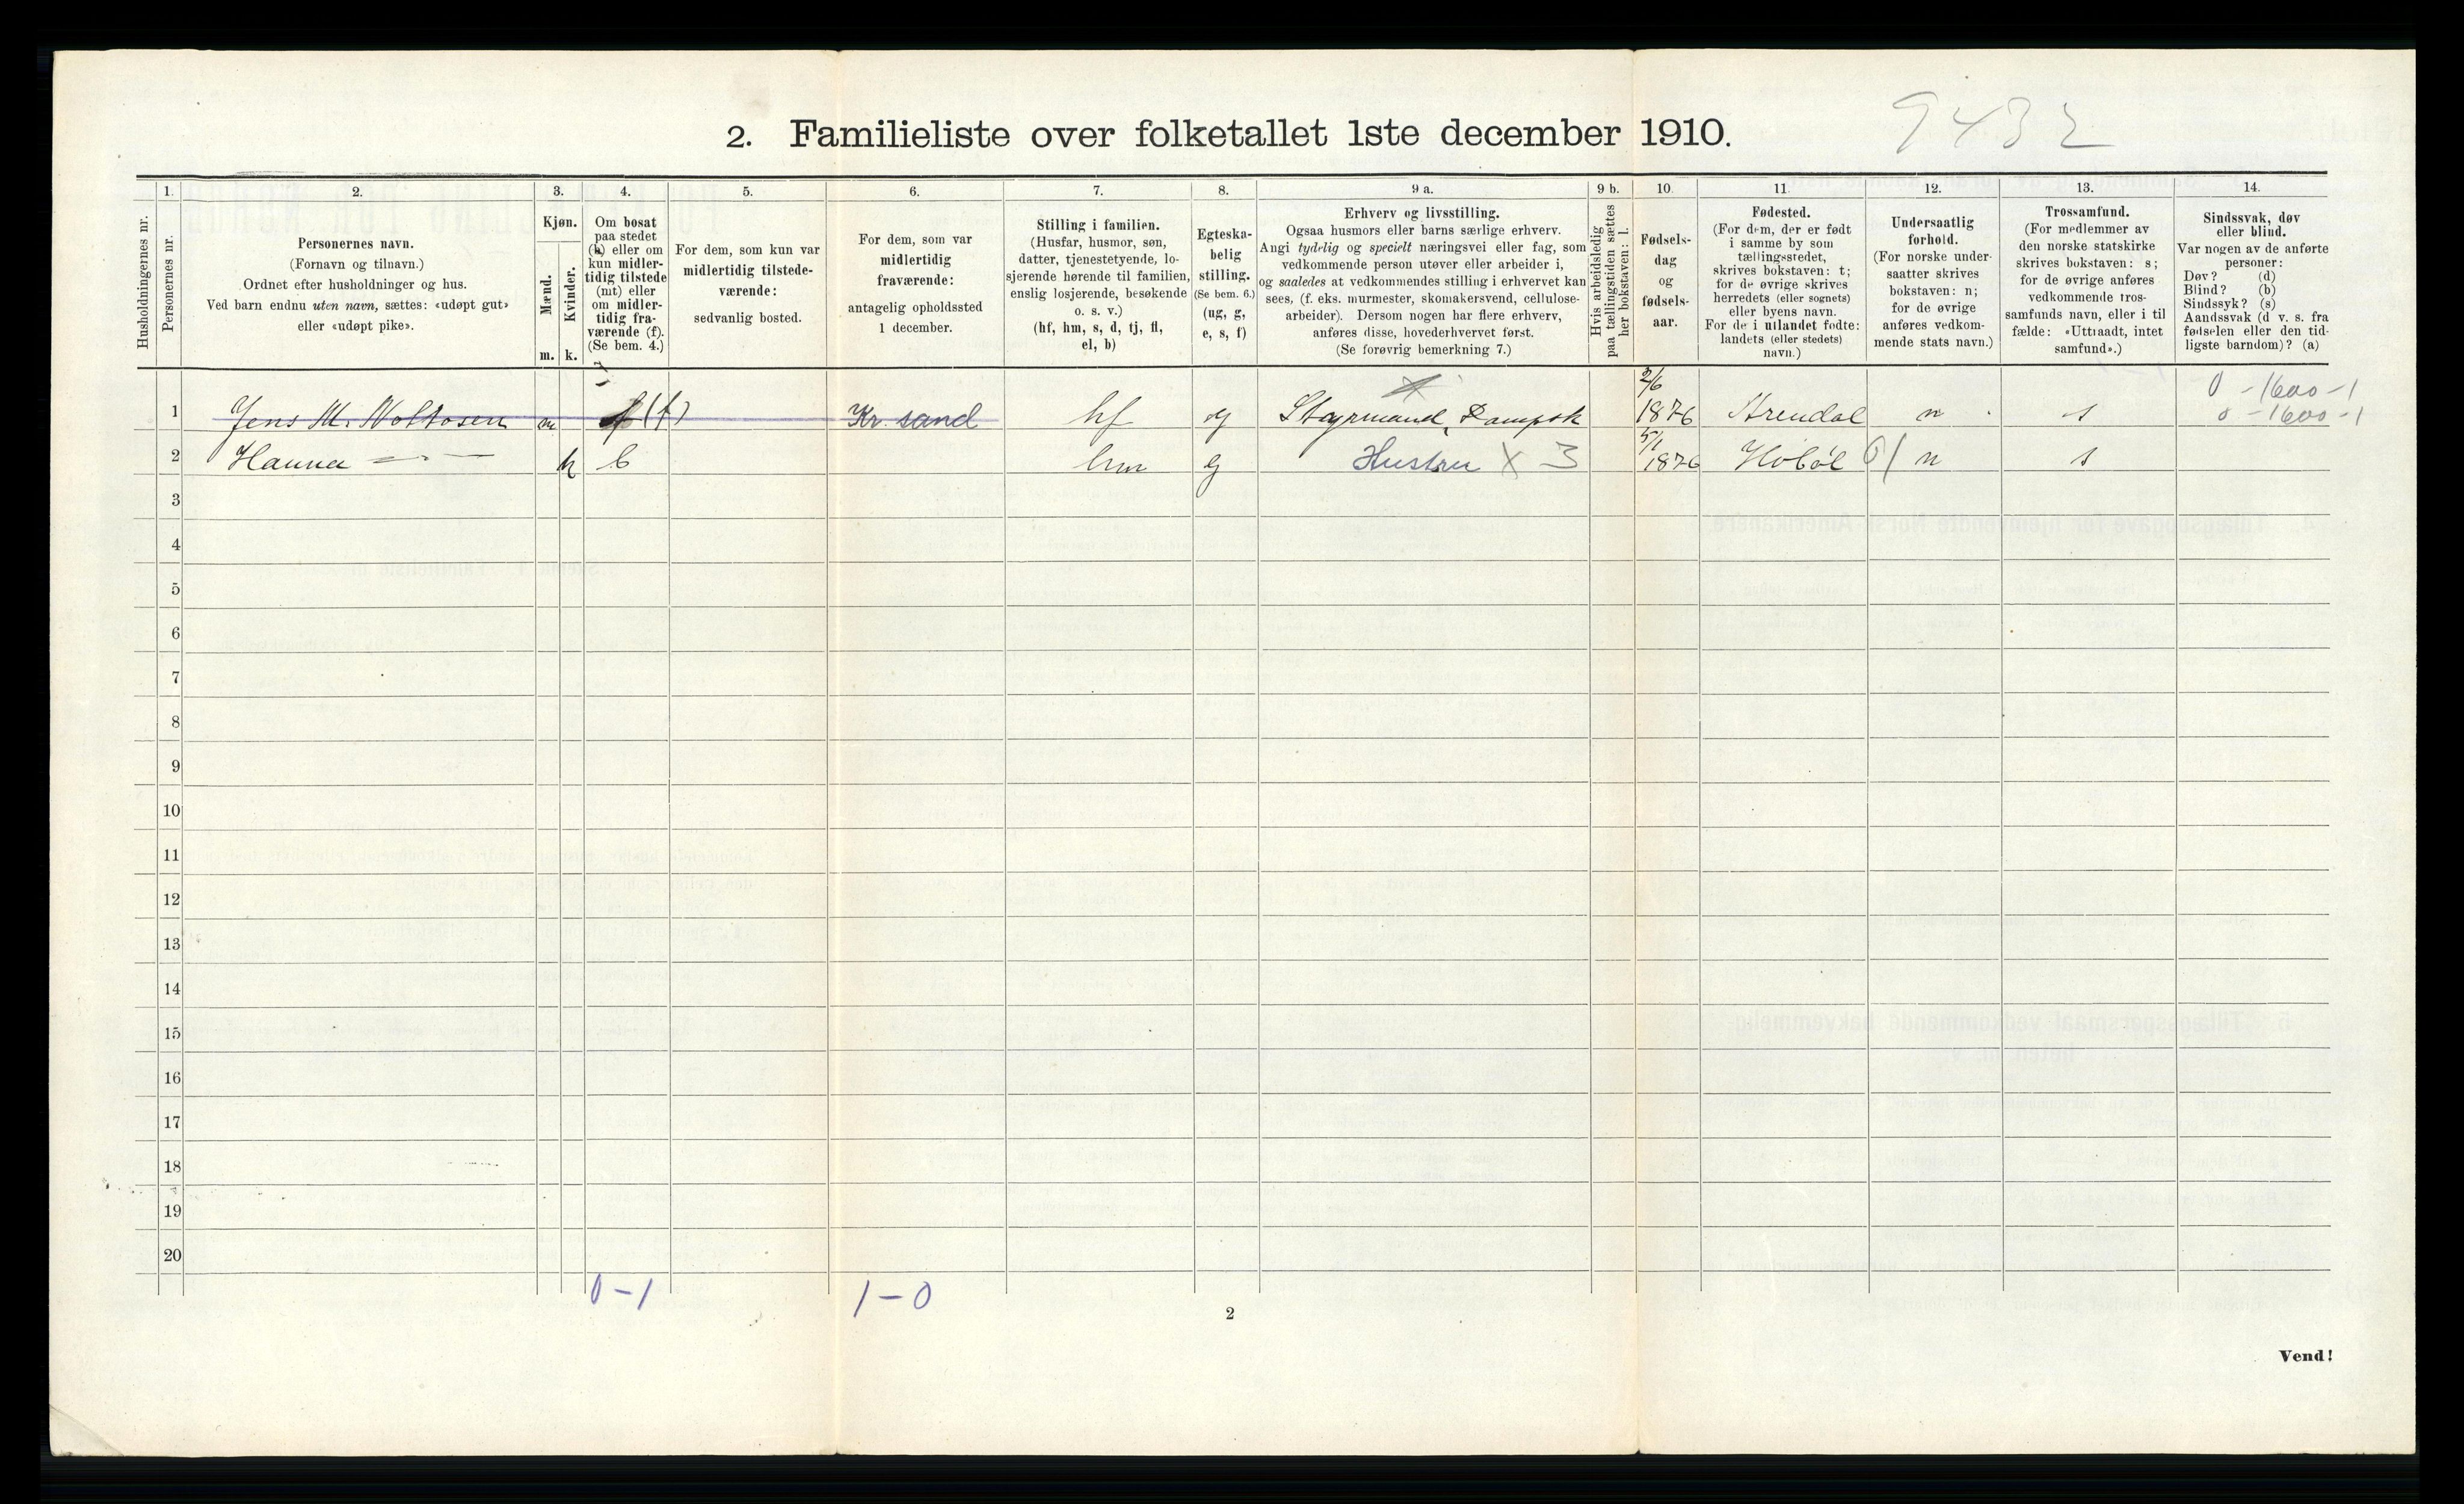 9432
2. Familieliste over folketallet 1ste december 1910.
1. 2. 3. 4. 5. 6. 7. 8. 9 a. 9 b. 10. 11. 12. 13. 14.
Husholdningernes nr.
Personernes nr.
Personernes navn.
(Fornavn og tilnavn.)
Ordnet efter husholdninger og hus.
Ved barn endnu uten navn, sættes: «udøpt gut»
eller «udøpt pike».
Kjøn.
Mænd.
Kvinder.
m. k.
Om bosat
paa stedet
(b) eller om
kun midler-
tidig tilstede
(mt) eller
om midler-
tidig fra-
værende (f).
(Se bem. 4.)
For dem, som kun var
midlertidig tilstede-
værende:
sedvanlig bosted.
For dem, som var
midlertidig
fraværende:
antagelig opholdssted
1 december.
Stilling i familien.
(Husfar, husmor, søn,
datter, tjenestetyende, lo-
sjerende hørende til familien,
enslig losjerende, besøkende
o. s. v.)
(hf, hm, s, d, tj, fl,
el, b)
Egteska-
belig
stilling.
(Se bem. 6.)
(ug, g,
e, s, f)
Erhverv og livsstilling.
Ogsaa husmors eller barns særlige erhverv.
Angi tydelig og specielt næringsvei eller fag, som
vedkommende person utøver eller arbeider i,
og saaledes at vedkommendes stilling i erhvervet kan
sees, (f. eks. murmester, skomakersvend, cellulose-
arbeider). Dersom nogen har flere erhverv,
anføres disse, hovederhvervet først.
(Se forøvrig bemerkning 7.)
Hvis arbeidsledig
paa tællingstiden sættes
her bokstaven: l.
Fødsels-
dag
og
fødsels-
aar.
Fødested.
(For dem, der er født
i samme by som
tællingsstedet,
skrives bokstaven: t;
for de øvrige skrives
herredets (eller sognets)
eller byens navn.
For de i utlandet fødte:
landets (eller stedets)
navn.)
Undersaatlig
forhold.
(For norske under-
saatter skrives
bokstaven: n;
for de øvrige
anføres vedkom-
mende stats navn.)
Trossamfund.
(For medlemmer av
den norske statskirke
skrives bokstaven: s;
for de øvrige anføres
vedkommende tros-
samfunds navn, eller i til
fælde: «Uttraadt, intet
samfund».)
Sindssvak, døv
eller blind.
Var nogen av de anførte
personer:
Døv? (d)
Blind? (b)
Sindssyk? (s)
Aandssvak (d v. s. fra
fødselen eller den tid-
ligste barndom)? (a)
0 - 1600 - 1
1 Jens M. m (f) Kr. sand hf g Styrmand, Dampsk 2/6 1876 Arendal n s 0 - 1600 - 1
2 Hanna — " — k b hm g Hustru X 3 5/1 1876 Høbøl 01 n s
3
4
5
6
7
8
9
10
11
12
13
14
15
16
17
18
19
20
0 - 1 1 - 0
2
Vend!